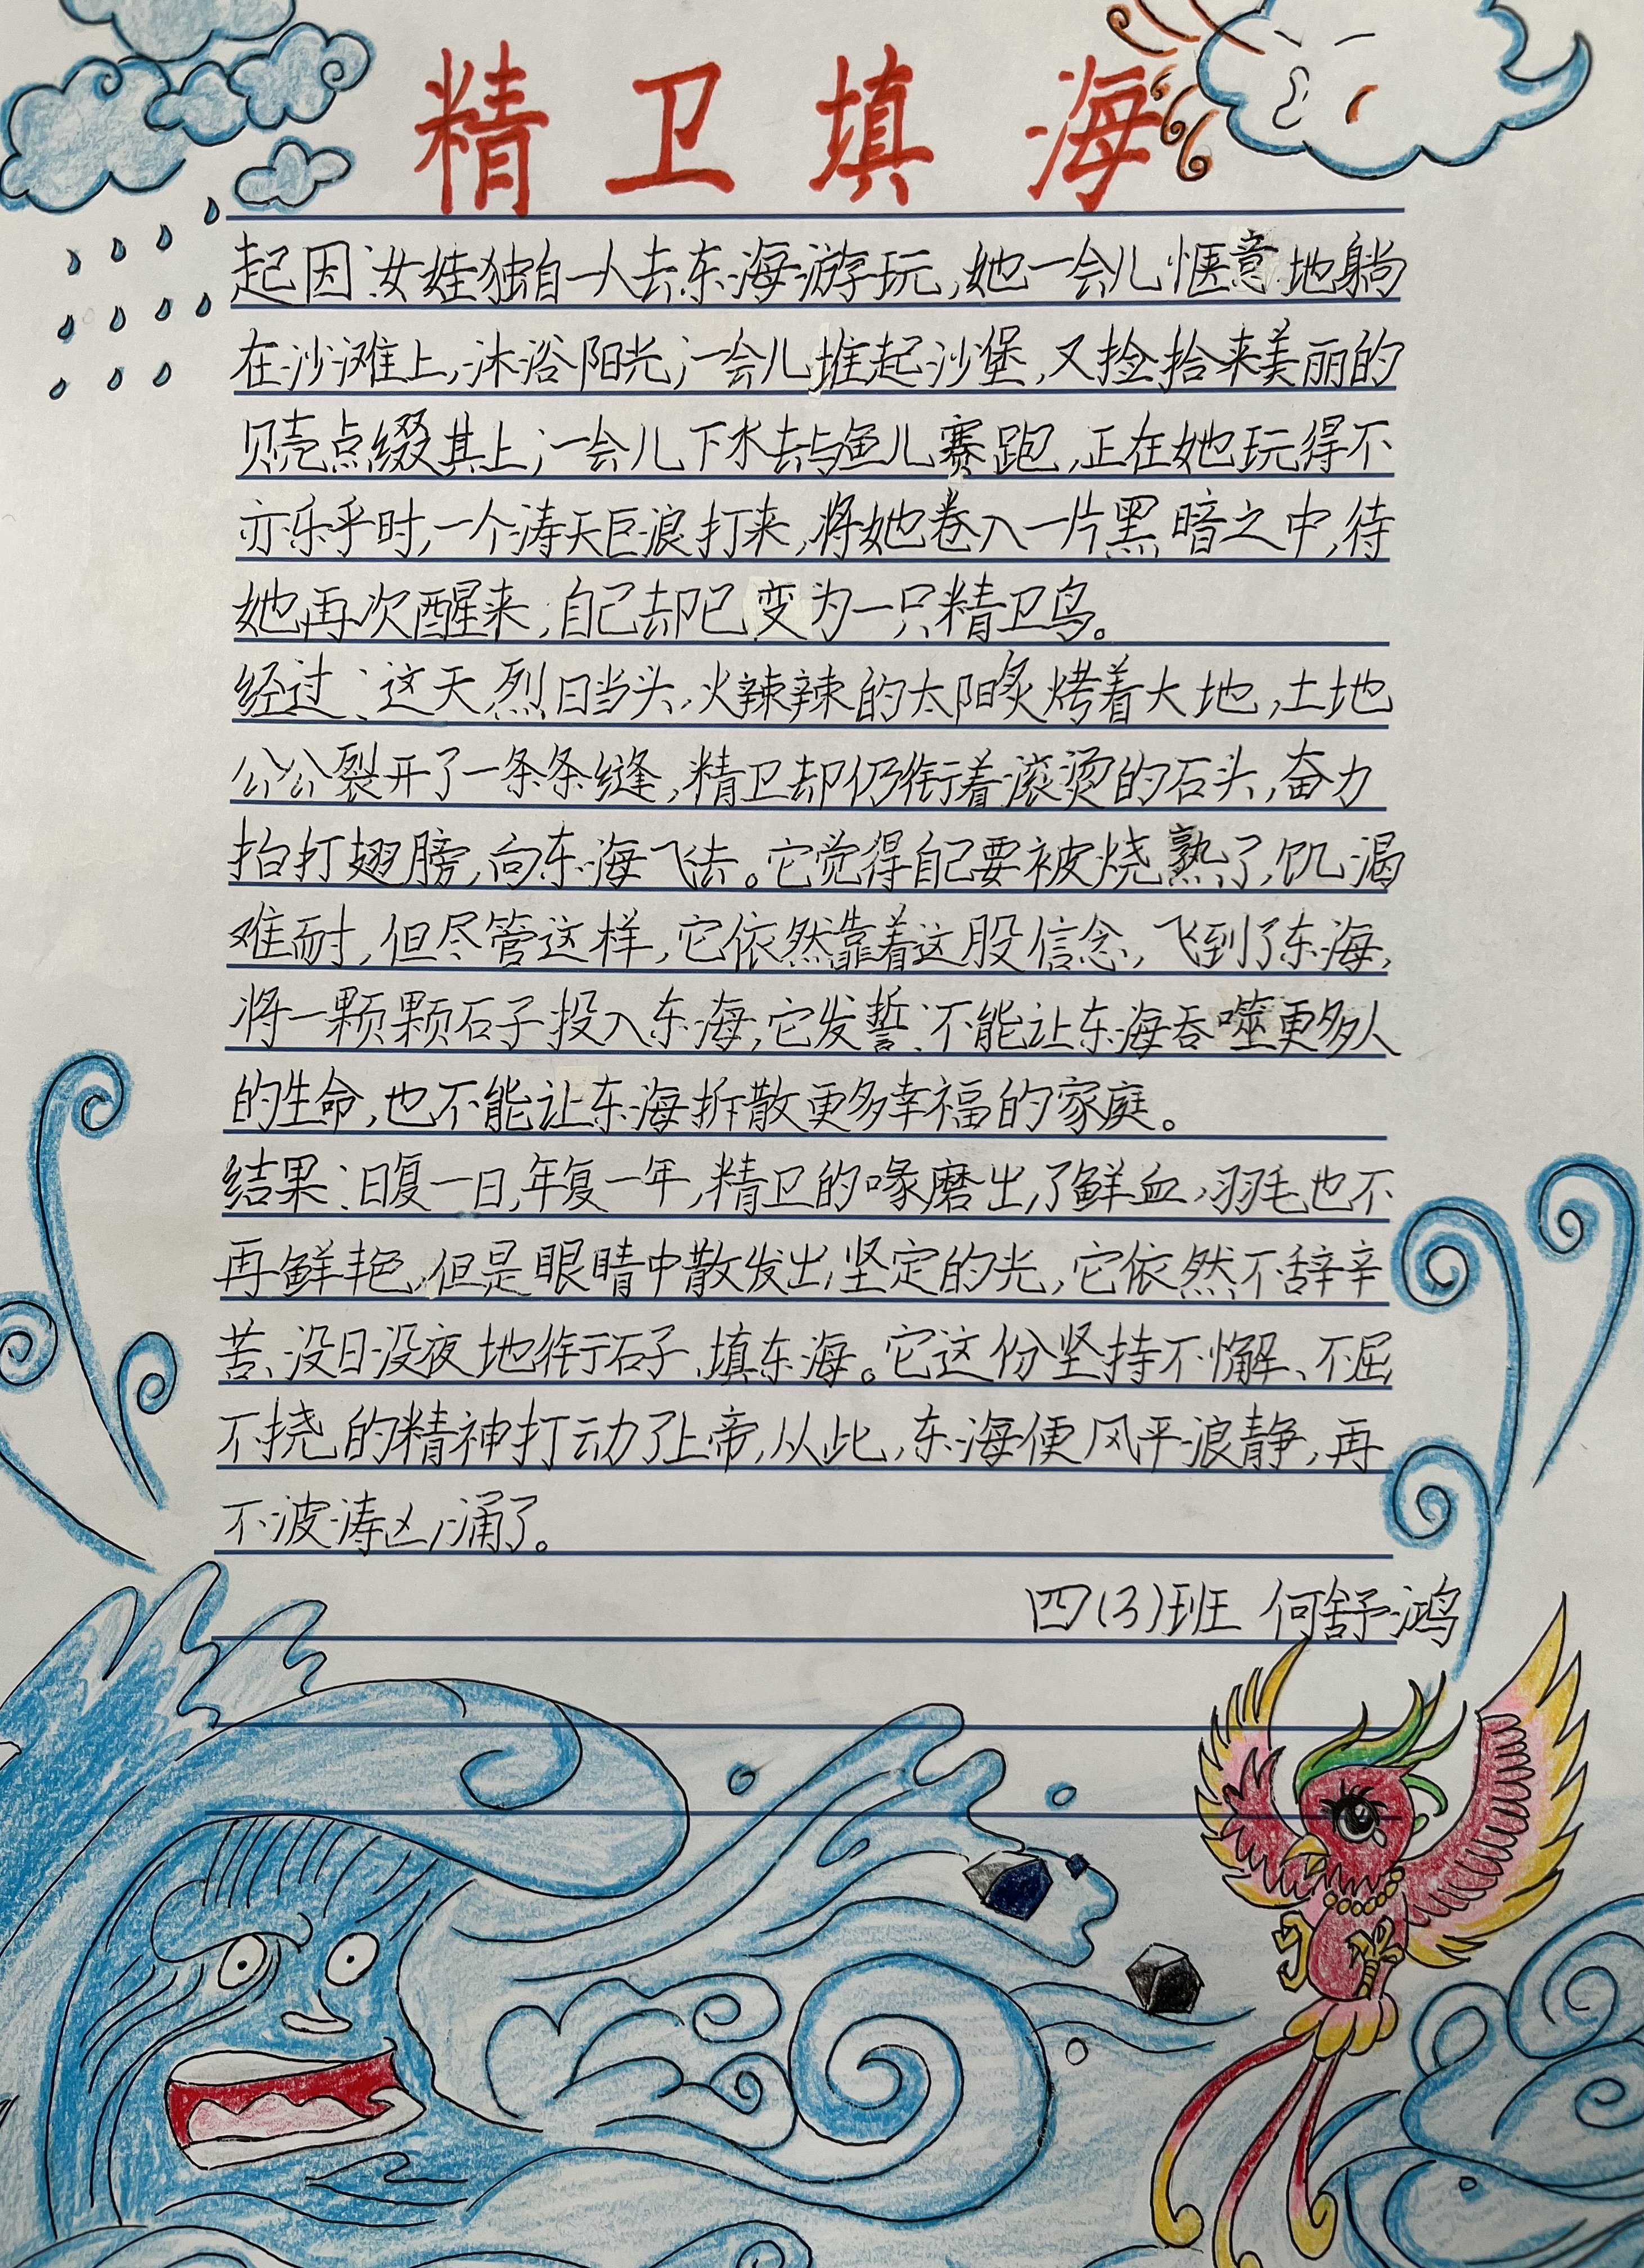 精卫填海
起因:女娃独自一人去东海游玩,她一会儿惬意地躺
在沙滩上,沐浴阳光;一会儿堆起沙堡,又捡拾来美丽的
贝壳点缀其上;一会儿下水去与鱼儿赛跑,正在她玩得不
亦乐乎时,一个涛天巨浪打来,将她卷入一片黑暗之中,待
她再次醒来,自己却已变为一只精卫鸟。
经过:这天烈日当头,火辣辣的太阳炙烤着大地,土地
公公裂开了一条条缝,精卫却仍衔着滚烫的石头,奋力
拍打翅膀,向东海飞去。它觉得自己要被烧熟了,饥渴
难耐,但尽管这样,它依然靠着这股信念,飞到了东海,
将一颗颗石子投入东海,它发誓:不能让东海吞噬更多人
的生命,也不能让东海拆散更多幸福的家庭。
结果:日复一日,年复一年,精卫的喙磨出了鲜血,羽毛也不
再鲜艳,但是眼睛中散发出坚定的光,它依然不辞辛
苦、没日没夜地衔石子、填东海。它这份坚持不懈、不屈
不挠的精神打动了上帝,从此,东海便风平浪静,再
不波涛汹涌了。
四(3)班 何舒鸿